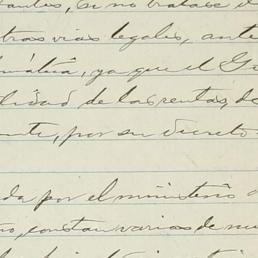 antes, si no tratase d
tras vias legales, ante
mática, ya que el G
lidad de las rentas, de
ente, por su decreto
da por el ministerio
no, constan varios de